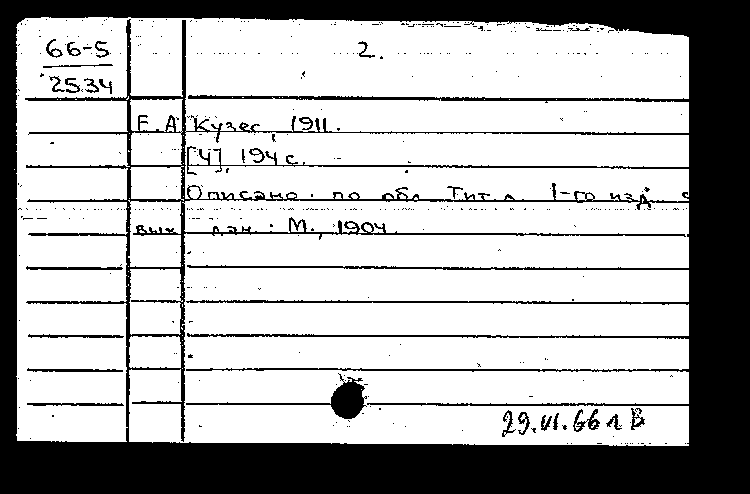 66-5
2534
2.
Е.А Кузес, 1911.
[4], 194 с.
Описано по обл. Тит. л. 1-го изд. с
вых дан.: М., 1904.
29.VI.66 л В